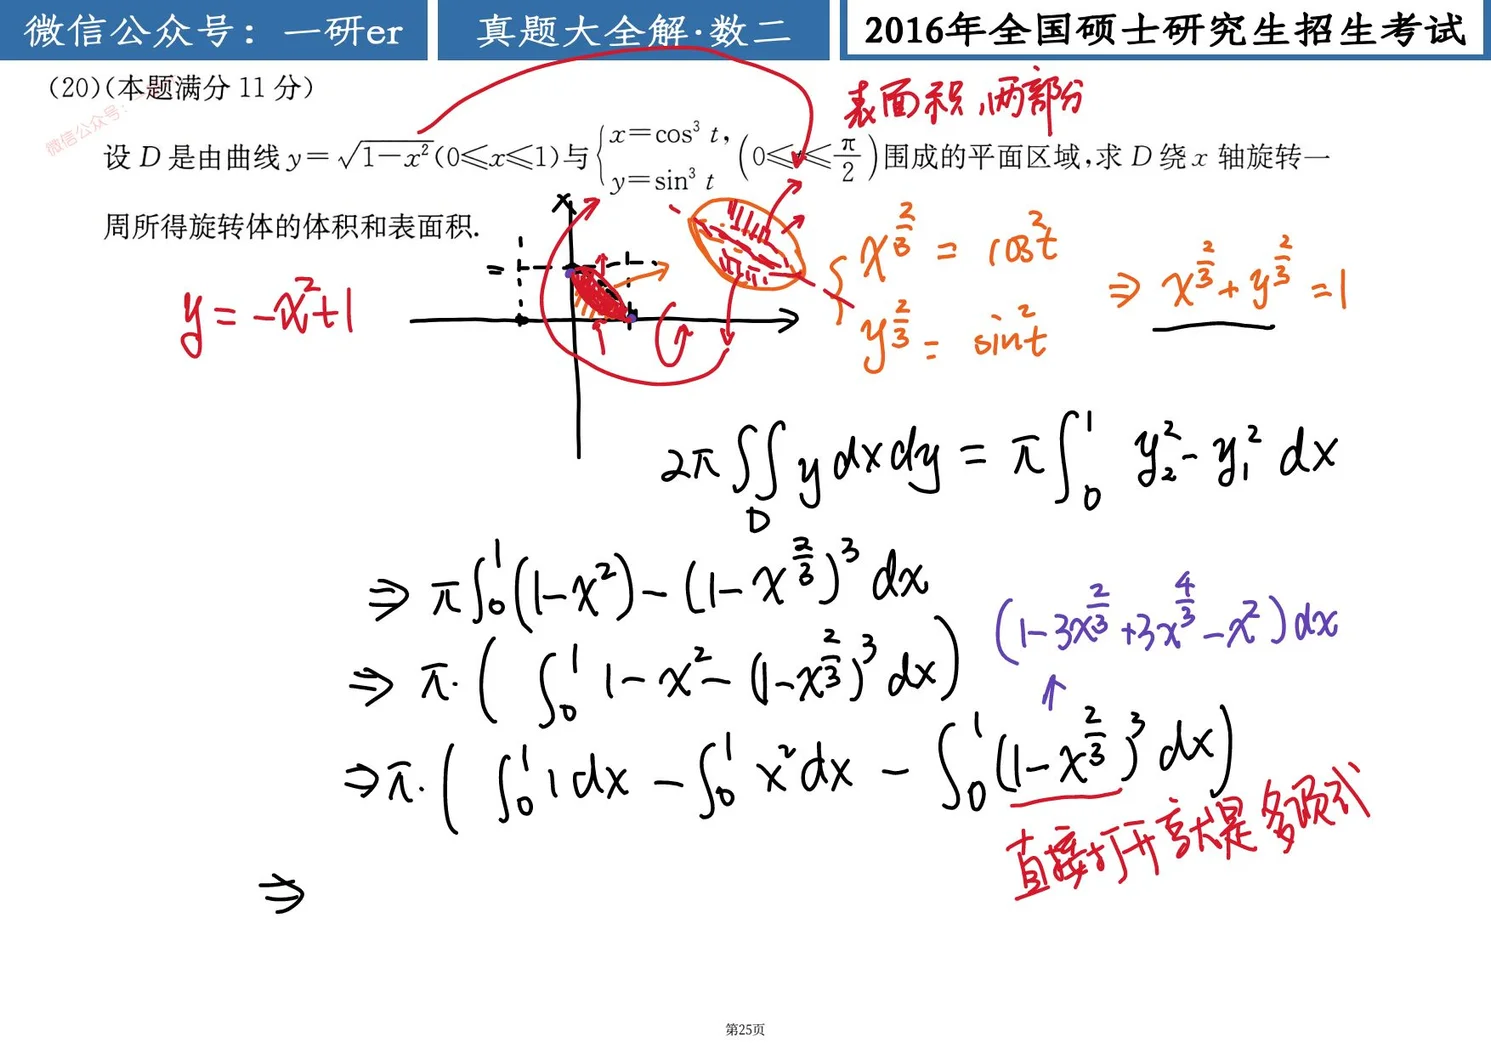 微信公众号：一研er
真题大全解·数二
2016年全国硕士研究生招生考试
(20)(本题满分 11 分)
微信公众号：
表面积,两部分
设 D 是由曲线 y=√(1-x²)(0≤x≤1)与{x=cos³ t, y=sin³ t (0≤t≤π/2)围成的平面区域,求 D 绕 x 轴旋转一
周所得旋转体的体积和表面积.
y = -x²+1
{x^(2/3) = cos²t
y^(2/3) = sin²t
⇒ x^(2/3) + y^(2/3) = 1
2π∬_D y dxdy = π∫₀¹ y₂² - y₁² dx
⇒ π∫₀¹(1-x²)-(1-x^(2/3))³ dx
(1-3x^(2/3)+3x^(4/3)-x²)dx
⇒ π·(∫₀¹ 1-x²-(1-x^(2/3))³ dx)
↑
⇒π·(∫₀¹ 1dx - ∫₀¹ x²dx - ∫₀¹(1-x^(2/3))³ dx)
直接打开就是多项式
⇒
第25页